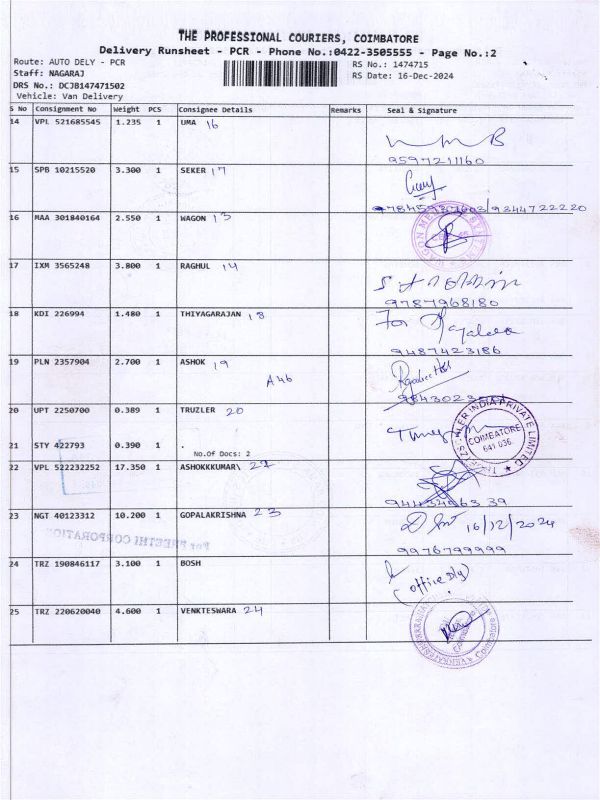 THE PROFESSIONAL COURIERS, COIMBATORE
Delivery Runsheet - PCR - Phone No.:0422-3505555 - Page No.:2
Route: AUTO DELY - PCR
RS No.: 1474715
Staff: NAGARAJ
RS Date: 16-Dec-2024
DRS No.: DCJB147471502
Vehicle: Van Delivery
S No Consignment No Weight PCS Consignee Details Remarks Seal & Signature
14 VPL 521685545 1.235 1 UMA 16
9597211160
15 SPB 10215520 3.300 1 SEKER 17
/9344722220
16 MAA 301840164 2.550 1 WAGON 13
17 IXM 3565248 3.800 1 RAGHUL 14
9787968180
18 KDI 226994 1.480 1 THIYAGARAJAN 18
For
9487423186
19 PLN 2357904 2.700 1 ASHOK 19
A46
20 UPT 2250700 0.389 1 TRUZLER 20
INDIA PRIVATE LIMITED
COIMBATORE
641 036.
21 STY 422793 0.390 1 .
No.Of Docs: 2
22 VPL 522232252 17.350 1 ASHOKKKUMAR\ 22
23 NGT 40123312 10.200 1 GOPALAKRISHNA 23
16/12/2024
For PREETHI CORPORATION
9976799999
24 TRZ 190846117 3.100 1 BOSH
(office Dly)
25 TRZ 220620040 4.600 1 VENKTESWARA 24
Coimbatore